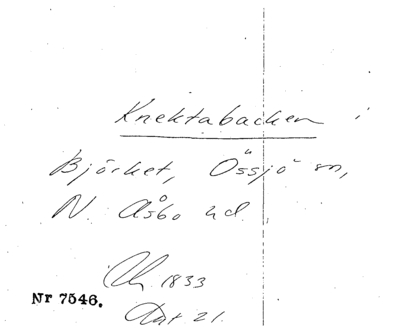 Knektabacken i
Björket, Össjö sn,
N. Åsbo hd.
1833
Nr 7546.
21.